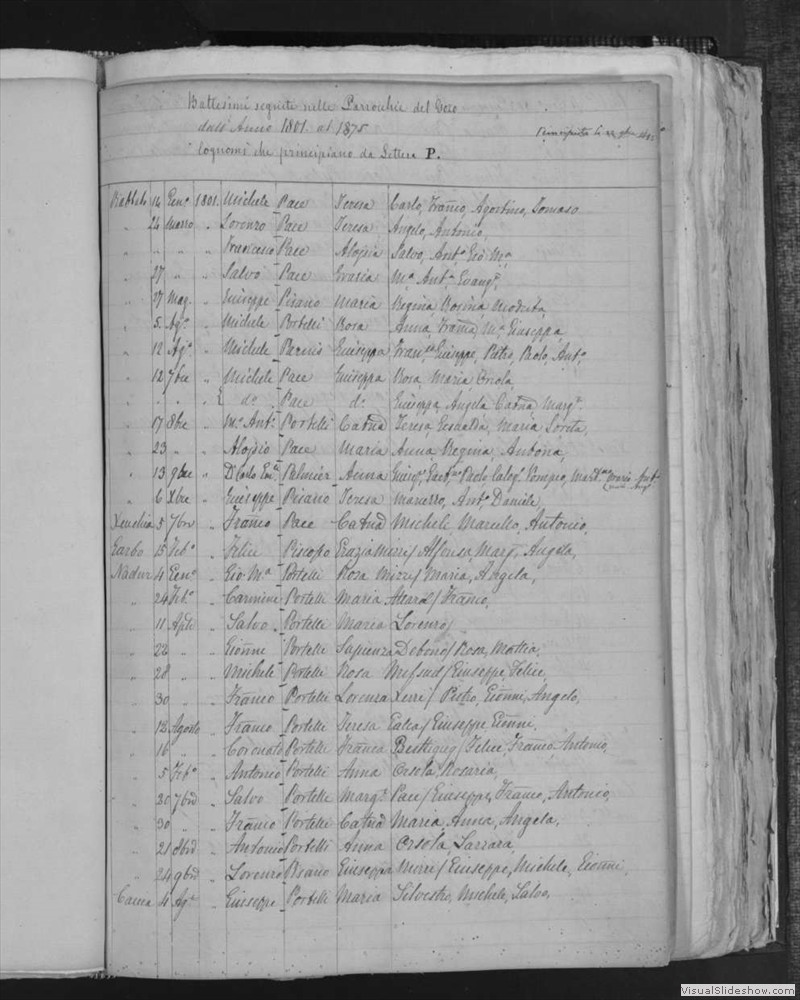 Battesimi seguiti nelle Parrocchie del Gozo
dall' Anno 1801. al 1875
Cognomi che principiano da Lettera P.
14 Gen.º 1801. Michele Pace Teresa Carlo, Franco, Agostino, Tomaso
" 24 Marzo " Lorenzo Pace Teresa Angelo, Antonio,
" " " " Francesco Pace Aloisia Salvo, Ant.º Gio M.ª
" 27 " " Salvo Pace Grazia M.ª Ant.ª Evang.ª,
" 27 Mag. " Giuseppe Pisano Maria Regina Rosina Modesta,
" 5. Ag.º " Michele Portelli Rosa Anna, Franca, M.ª Giuseppa,
" 12 Ag.º " Michele Giuseppa Giuseppe, Pietro, Paolo, Ant.º
" 12 7bre " Michele Pace Giuseppa Rosa, Maria Orsola
" " " " d.º Pace d.º Giuseppa, Angela Catna Marg.ª
" 17 8bre " M.º Ant.º Portelli Catna Teresa, Maria Loreta,
" 23 " " Aloisio Pace Maria Anna, Regina, Antonia,
" 13 9bre " Palmier Anna Paolo Caleg.º Pompeo,
" 6 Xbre " Giuseppe Pisano Teresa Ant.º Daniele
Xeuchia 5 7bre " Franco Pace Catna Michele, Marcello, Antonio,
Garbo 15 Feb.º " Felice Piscopo Grazia Alfonsa, Marg.ª, Angela,
Nadur 4 Gen.º " Gio M.ª Portelli Rosa Maria, Angela,
" 24 Feb.º " Carmine Portelli Maria Atard/ Franco,
" 11 Aple " Salvo Portelli Maria Lorenzo/
" 22 " " Gionni Portelli Sapienza Debono/ Rosa, Mattia,
" 28 " " Michele Portelli Rosa Mifsud/ Giuseppe, Felice,
" 30 " " Franco Portelli Lorenza Xerri/ Pietro, Gionni, Angelo,
" 12 Agosto " Franco Portelli Teresa Galea/ Giuseppe Gionni,
" 16 " " Coronato Portelli Franca Felice, Franco, Antonio,
" 5 Feb.º " Antonio Portelli Anna Orsola, Rosaria,
" 20 7bre " Salvo Portelli Marg.ª Pace/ Giuseppe, Franco, Antonio,
" 30 " " Franco Portelli Catna Maria, Anna, Angela,
" 21 8bre " Antonio Portelli Anna Orsola, Sarrara,
" 24 9bre " Lorenzo Giuseppa Giuseppe, Michele, Gionni,
4 Ag.º " Giuseppe Portelli Maria Silvestro, Michele, Salvo,
VisualSlideshow.com